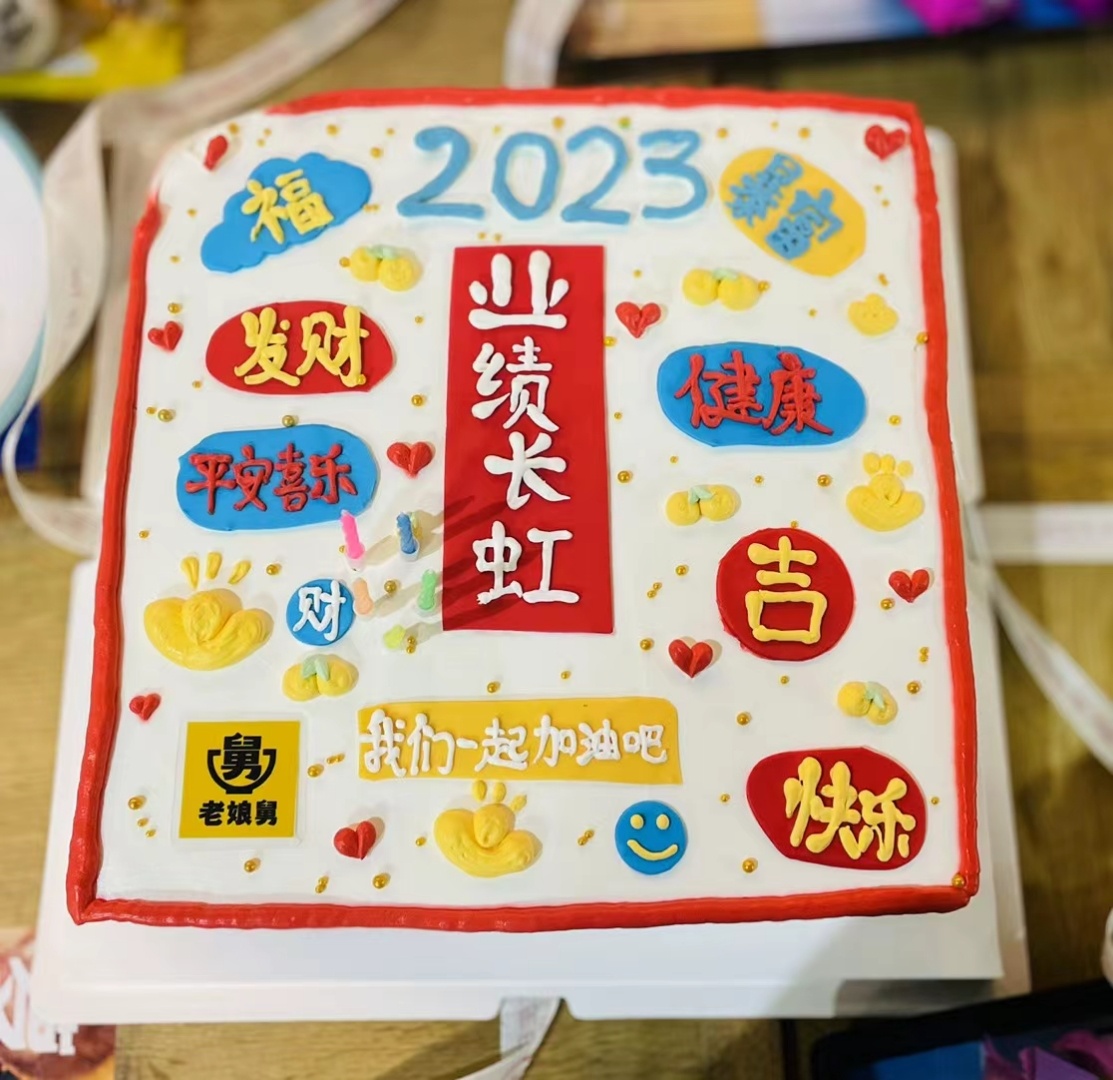 2023
福
暴富
业绩长虹
发财
健康
平安喜乐
财
吉
我们一起加油吧
舅
老娘舅
快乐